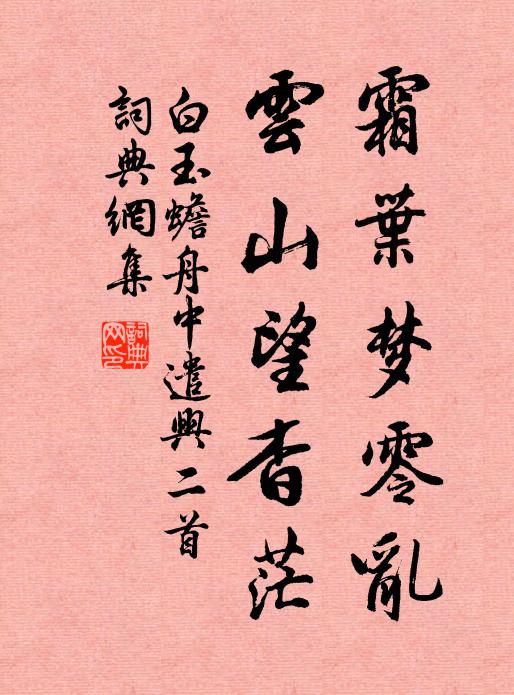 霜葉梦零亂
雲山望杳茫
白玉蟾舟中遣興二首
詞典網集
詞典网印